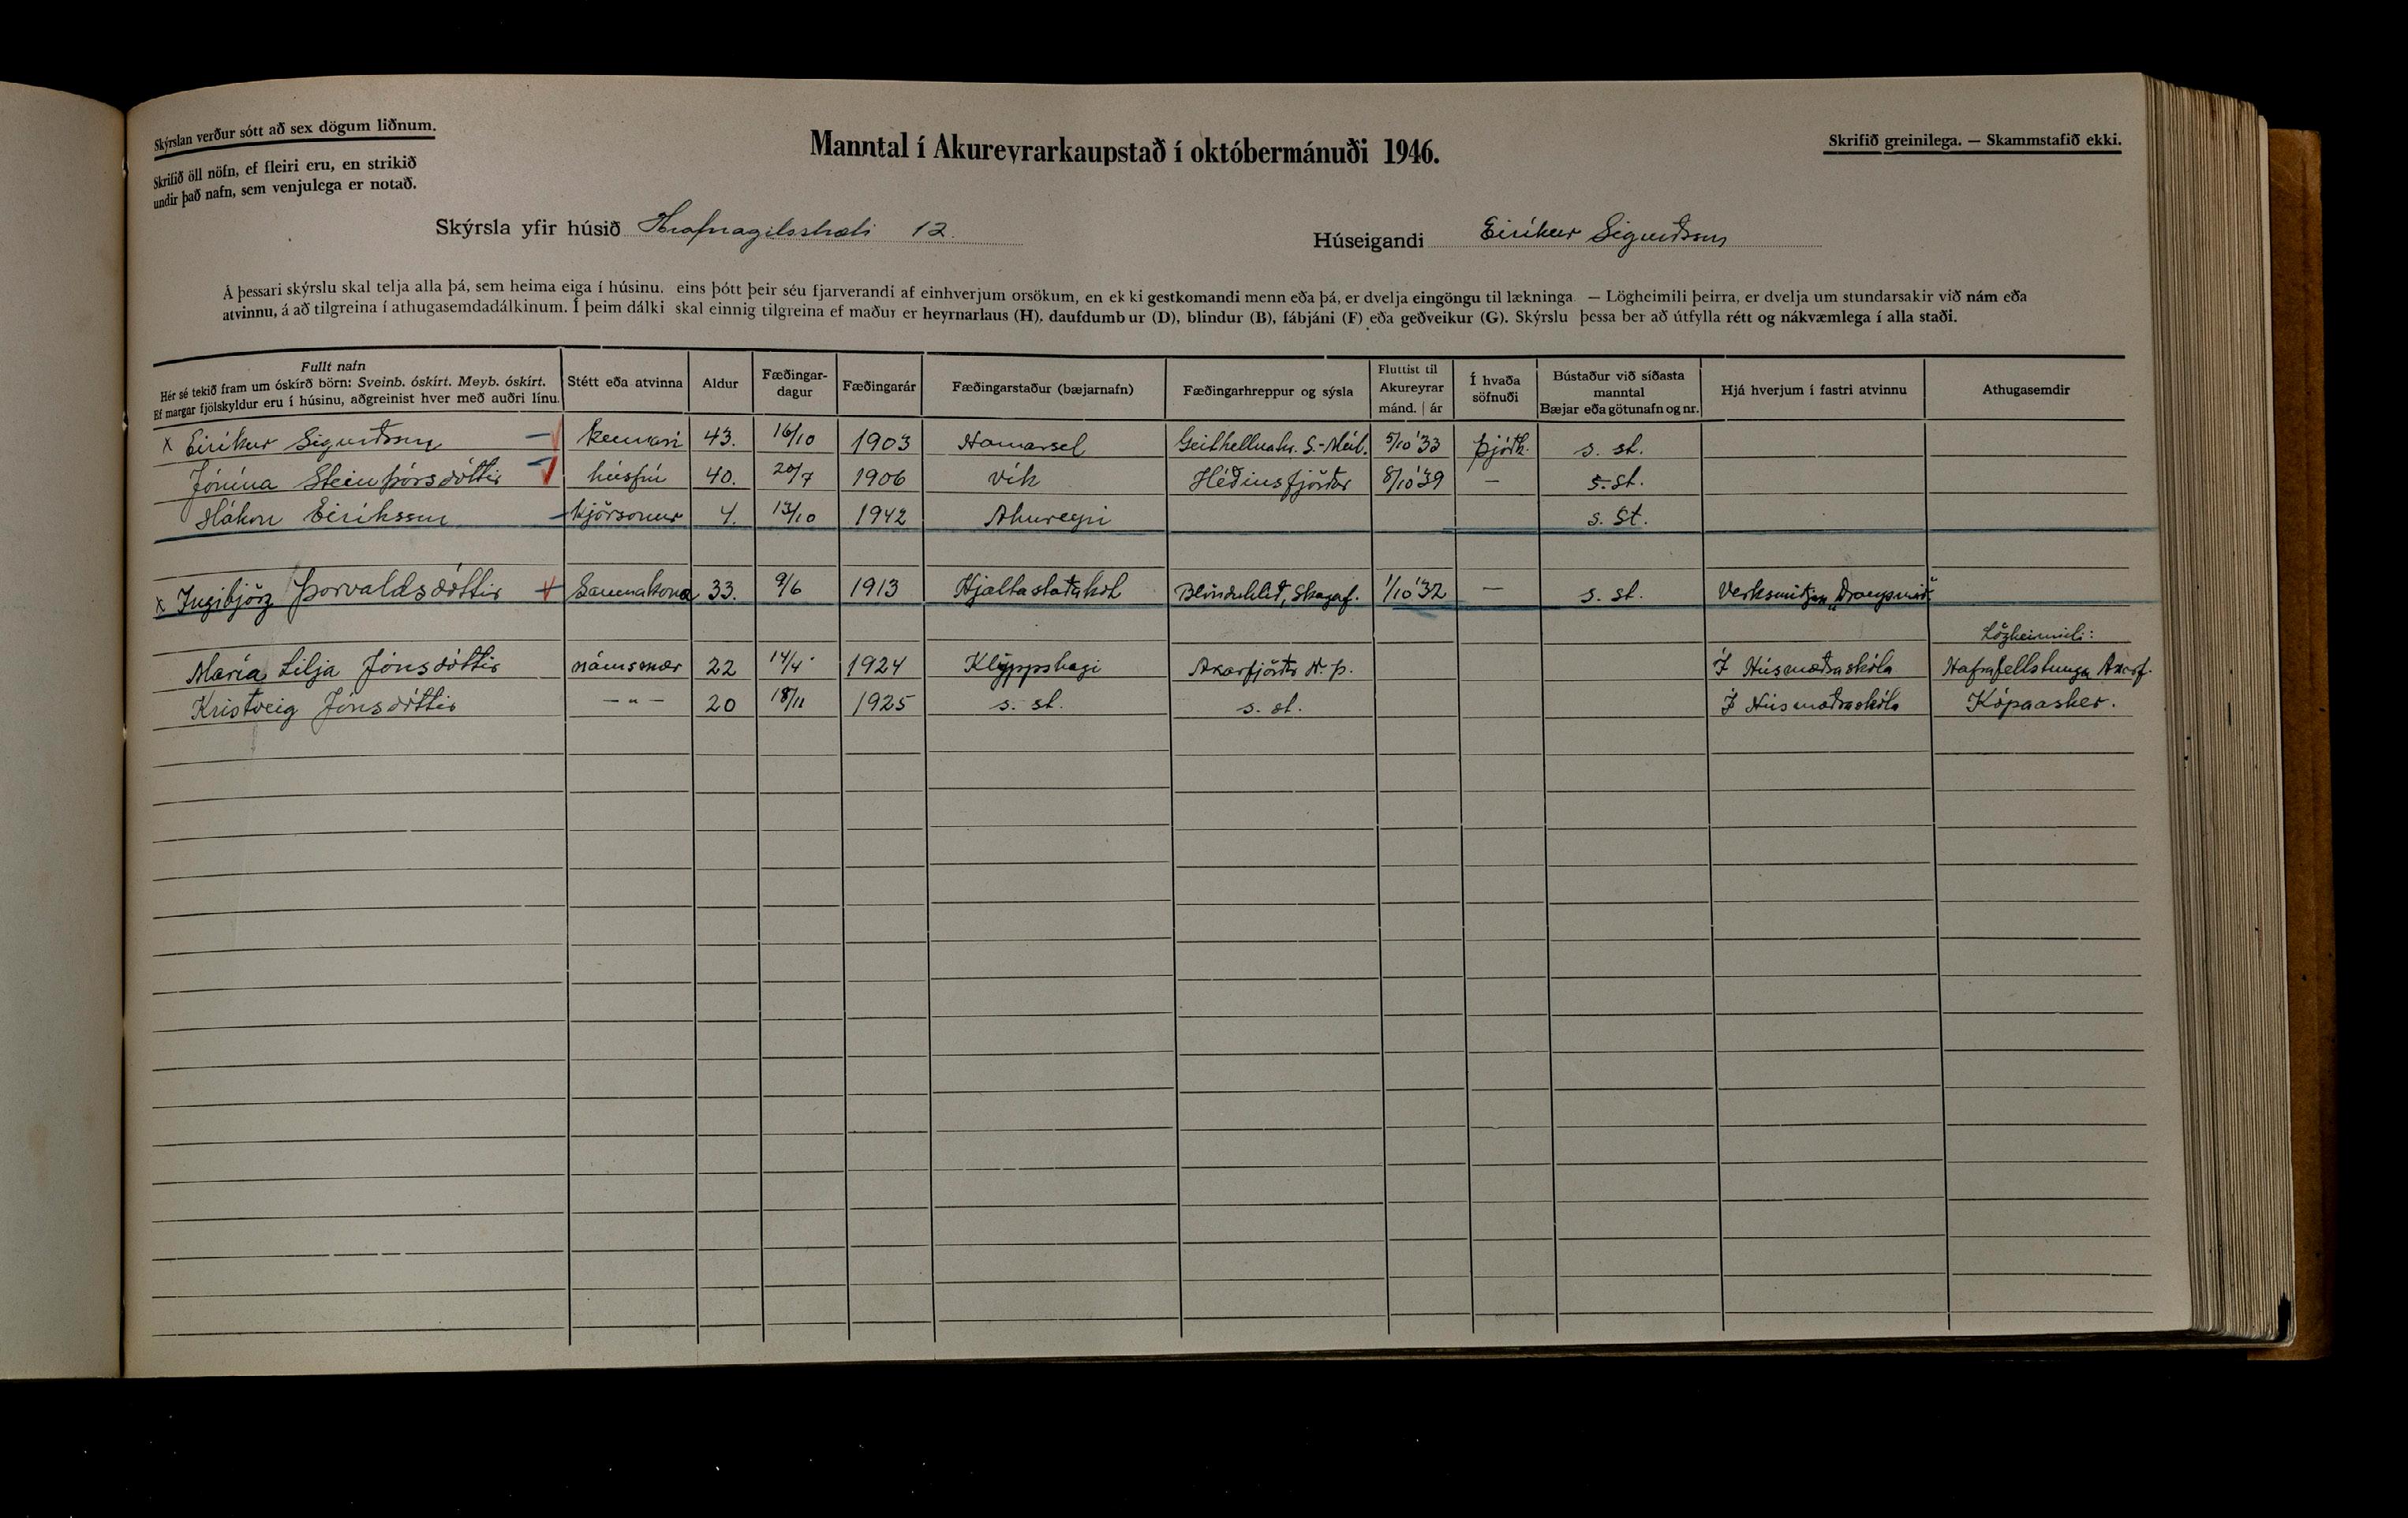 Skýrslan verður sótt að sex dögum liðnum.
Skrifið öll nöfn, ef fleiri eru, en strikið
undir það nafn, sem venjulega er notað.
Manntal í Akureyrarkaupstað í októbermánuði 1946.
Skrifið greinilega. — Skammstafið ekki.
Skýrsla yfir húsið Hrafnagilsstræti 12
Húseigandi Eiríkur Sigurðsson
Á þessari skýrslu skal telja alla þá, sem heima eiga í húsinu, eins þótt þeir séu fjarverandi af einhverjum orsökum, en ekki gestkomandi menn eða þá, er dvelja eingöngu til lækninga — Lögheimili þeirra, er dvelja um stundarsakir við nám eða
atvinnu, á að tilgreina í athugasemdadálkinum. Í þeim dálki skal einnig tilgreina ef maður er heyrnarlaus (H), daufdumbur (D), blindur (B), fábjáni (F) eða geðveikur (G). Skýrslu þessa ber að útfylla rétt og nákvæmlega í alla staði.
Fullt nafn
Hér sé tekið fram um óskírð börn: Sveinb. óskírt. Meyb. óskírt.
Ef margar fjölskyldur eru í húsinu, aðgreinist hver með auðri línu.
Stétt eða atvinna
Aldur
Fæðingar-
dagur
Fæðingarár
Fæðingarstaður (bæjarnafn)
Fæðingarhreppur og sýsla
Fluttist til
Akureyrar
mánd. | ár
Í hvaða
söfnuði
Bústaður við síðasta
manntal
Bæjar eða götunafn og nr.
Hjá hverjum í fastri atvinnu
Athugasemdir
x Eiríkur Sigurðsson kennari 43. 16/10 1903 Hamarsel Geithellnahr. S.-Múl. 5/10 '33 þjóðk. s. st.
Jónína Steinþórsdóttir húsfrú 40. 20/7 1906 Vík Héðinsfjörður 8/10 '39 — s. st.
Hákon Eiríksson kjörsonur 4. 13/10 1942 Akureyri s. st.
x Ingibjörg Þorvaldsdóttir Saumakona 33. 9/6 1913 Hjaltastaðakot Blönduhlíð, Skagaf. 1/10 '32 — s. st. Verksmiðjan „Draupnir“
Lögheimili:
María Lilja Jónsdóttir námsmær 22 14/4 1924 Klyppshagi Axarfjörður N. Þ. Í Húsmæðraskóla Hafrafellstunga Axarf.
Kristveig Jónsdóttir — " — 20 18/11 1925 s. st. s. st. Í Húsmæðraskóla Kópaasker.